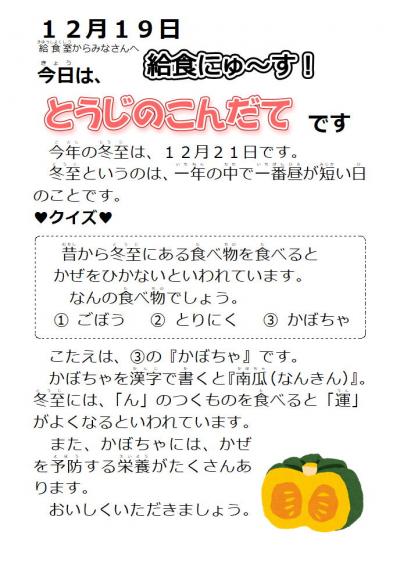 １２月１９日
給食室からみなさんへ
給食にゅ～す！
今日は、
とうじのこんだて です
今年の冬至は、１２月２１日です。
冬至というのは、一年の中で一番昼が短い日
のことです。
♥クイズ♥
昔から冬至にある食べ物を食べると
かぜをひかないといわれています。
なんの食べ物でしょう。
① ごぼう ② とりにく ③ かぼちゃ
こたえは、③の『かぼちゃ』です。
かぼちゃを漢字で書くと『南瓜（なんきん）』。
冬至には、「ん」のつくものを食べると「運」
がよくなるといわれています。
また、かぼちゃには、かぜ
を予防する栄養がたくさんあ
ります。
おいしくいただきましょう。